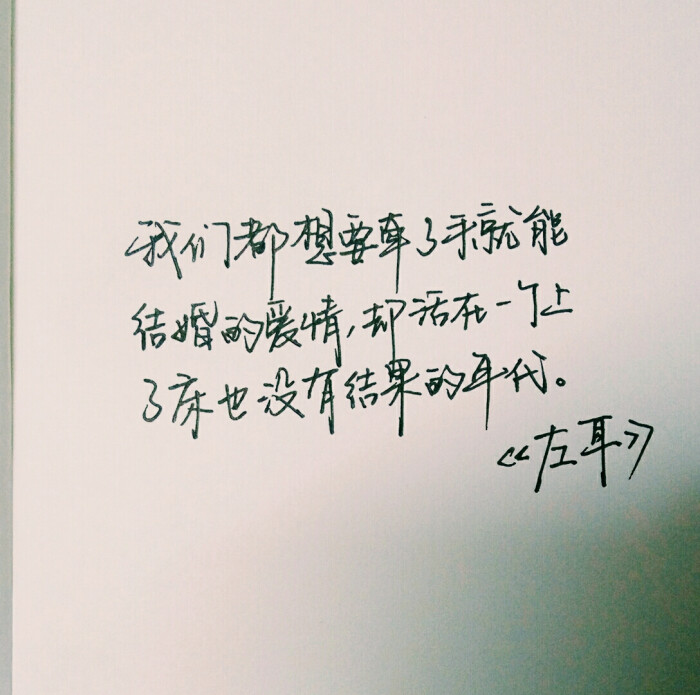 我们都想要牵了手就能
结婚的爱情,却活在一个上
了床也没有结果的年代。
《左耳》